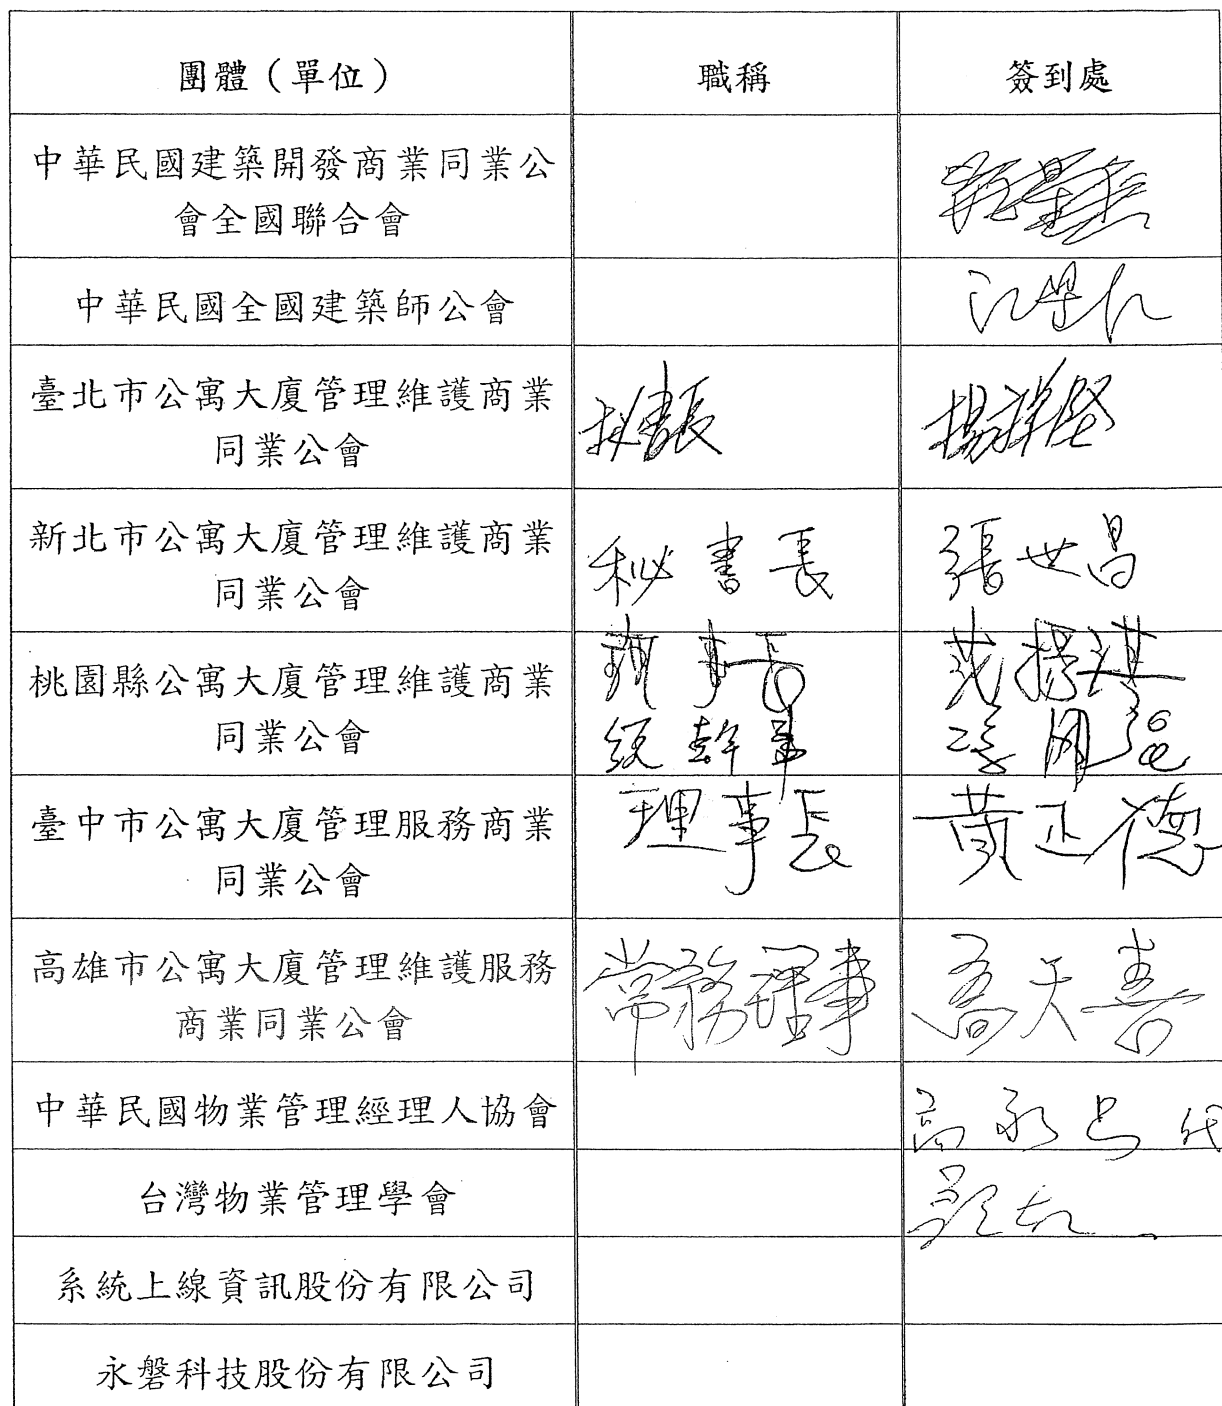 團體（單位） 職稱 簽到處
中華民國建築開發商業同業公
會全國聯合會
中華民國全國建築師公會
臺北市公寓大廈管理維護商業
同業公會
秘書長
新北市公寓大廈管理維護商業
同業公會
秘書長 張世昌
桃園縣公寓大廈管理維護商業
同業公會
理事長
總幹事
臺中市公寓大廈管理服務商業
同業公會
理事長 黃正德
高雄市公寓大廈管理維護服務
商業同業公會
常務理事 喬天壽
中華民國物業管理經理人協會
代
台灣物業管理學會
系統上線資訊股份有限公司
永磐科技股份有限公司